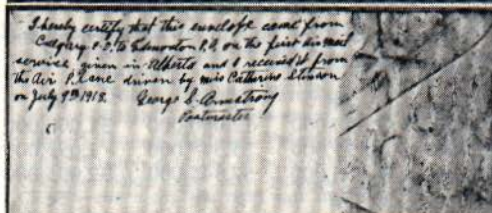 I hereby certify that this envelope came from
Calgary P.O. to Edmonton P.O. on the first air mail
service given in Alberta and I received it from
the Air Plane driven by miss Catherine Stinson
on July 9th 1918. George S. Armstrong
Postmaster